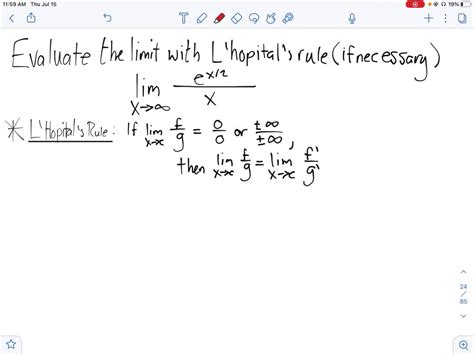 11:59 AM Thu Jul 15
19%
Evaluate the limit with L'hopital's rule (if necessary)
lim x→∞ e^x/2 / x
* L'Hopital's Rule: If lim x→x f/g = 0/0 or ±∞/±∞,
then lim x→x f/g = lim x→x f'/g'
24
/
85